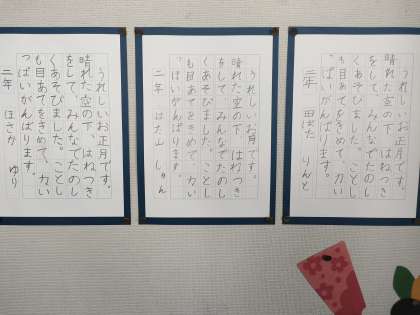 うれしいお正月です。
晴れた空の下、はねつき
をして、みんなでたのし
くあそびました。ことし
も目あてをきめて、力い
っぱいがんばります。
二年 田ばた りんと
うれしいお正月です。
晴れた空の下、はねつき
をして、みんなでたのし
くあそびました。ことし
も目あてをきめて、力い
っぱいがんばります。
二年 はた山 しゅん
うれしいお正月です。
晴れた空の下、はねつき
をして、みんなでたのし
くあそびました。ことし
も目あてをきめて、力い
っぱいがんばります。
二年 ほさか ゆり